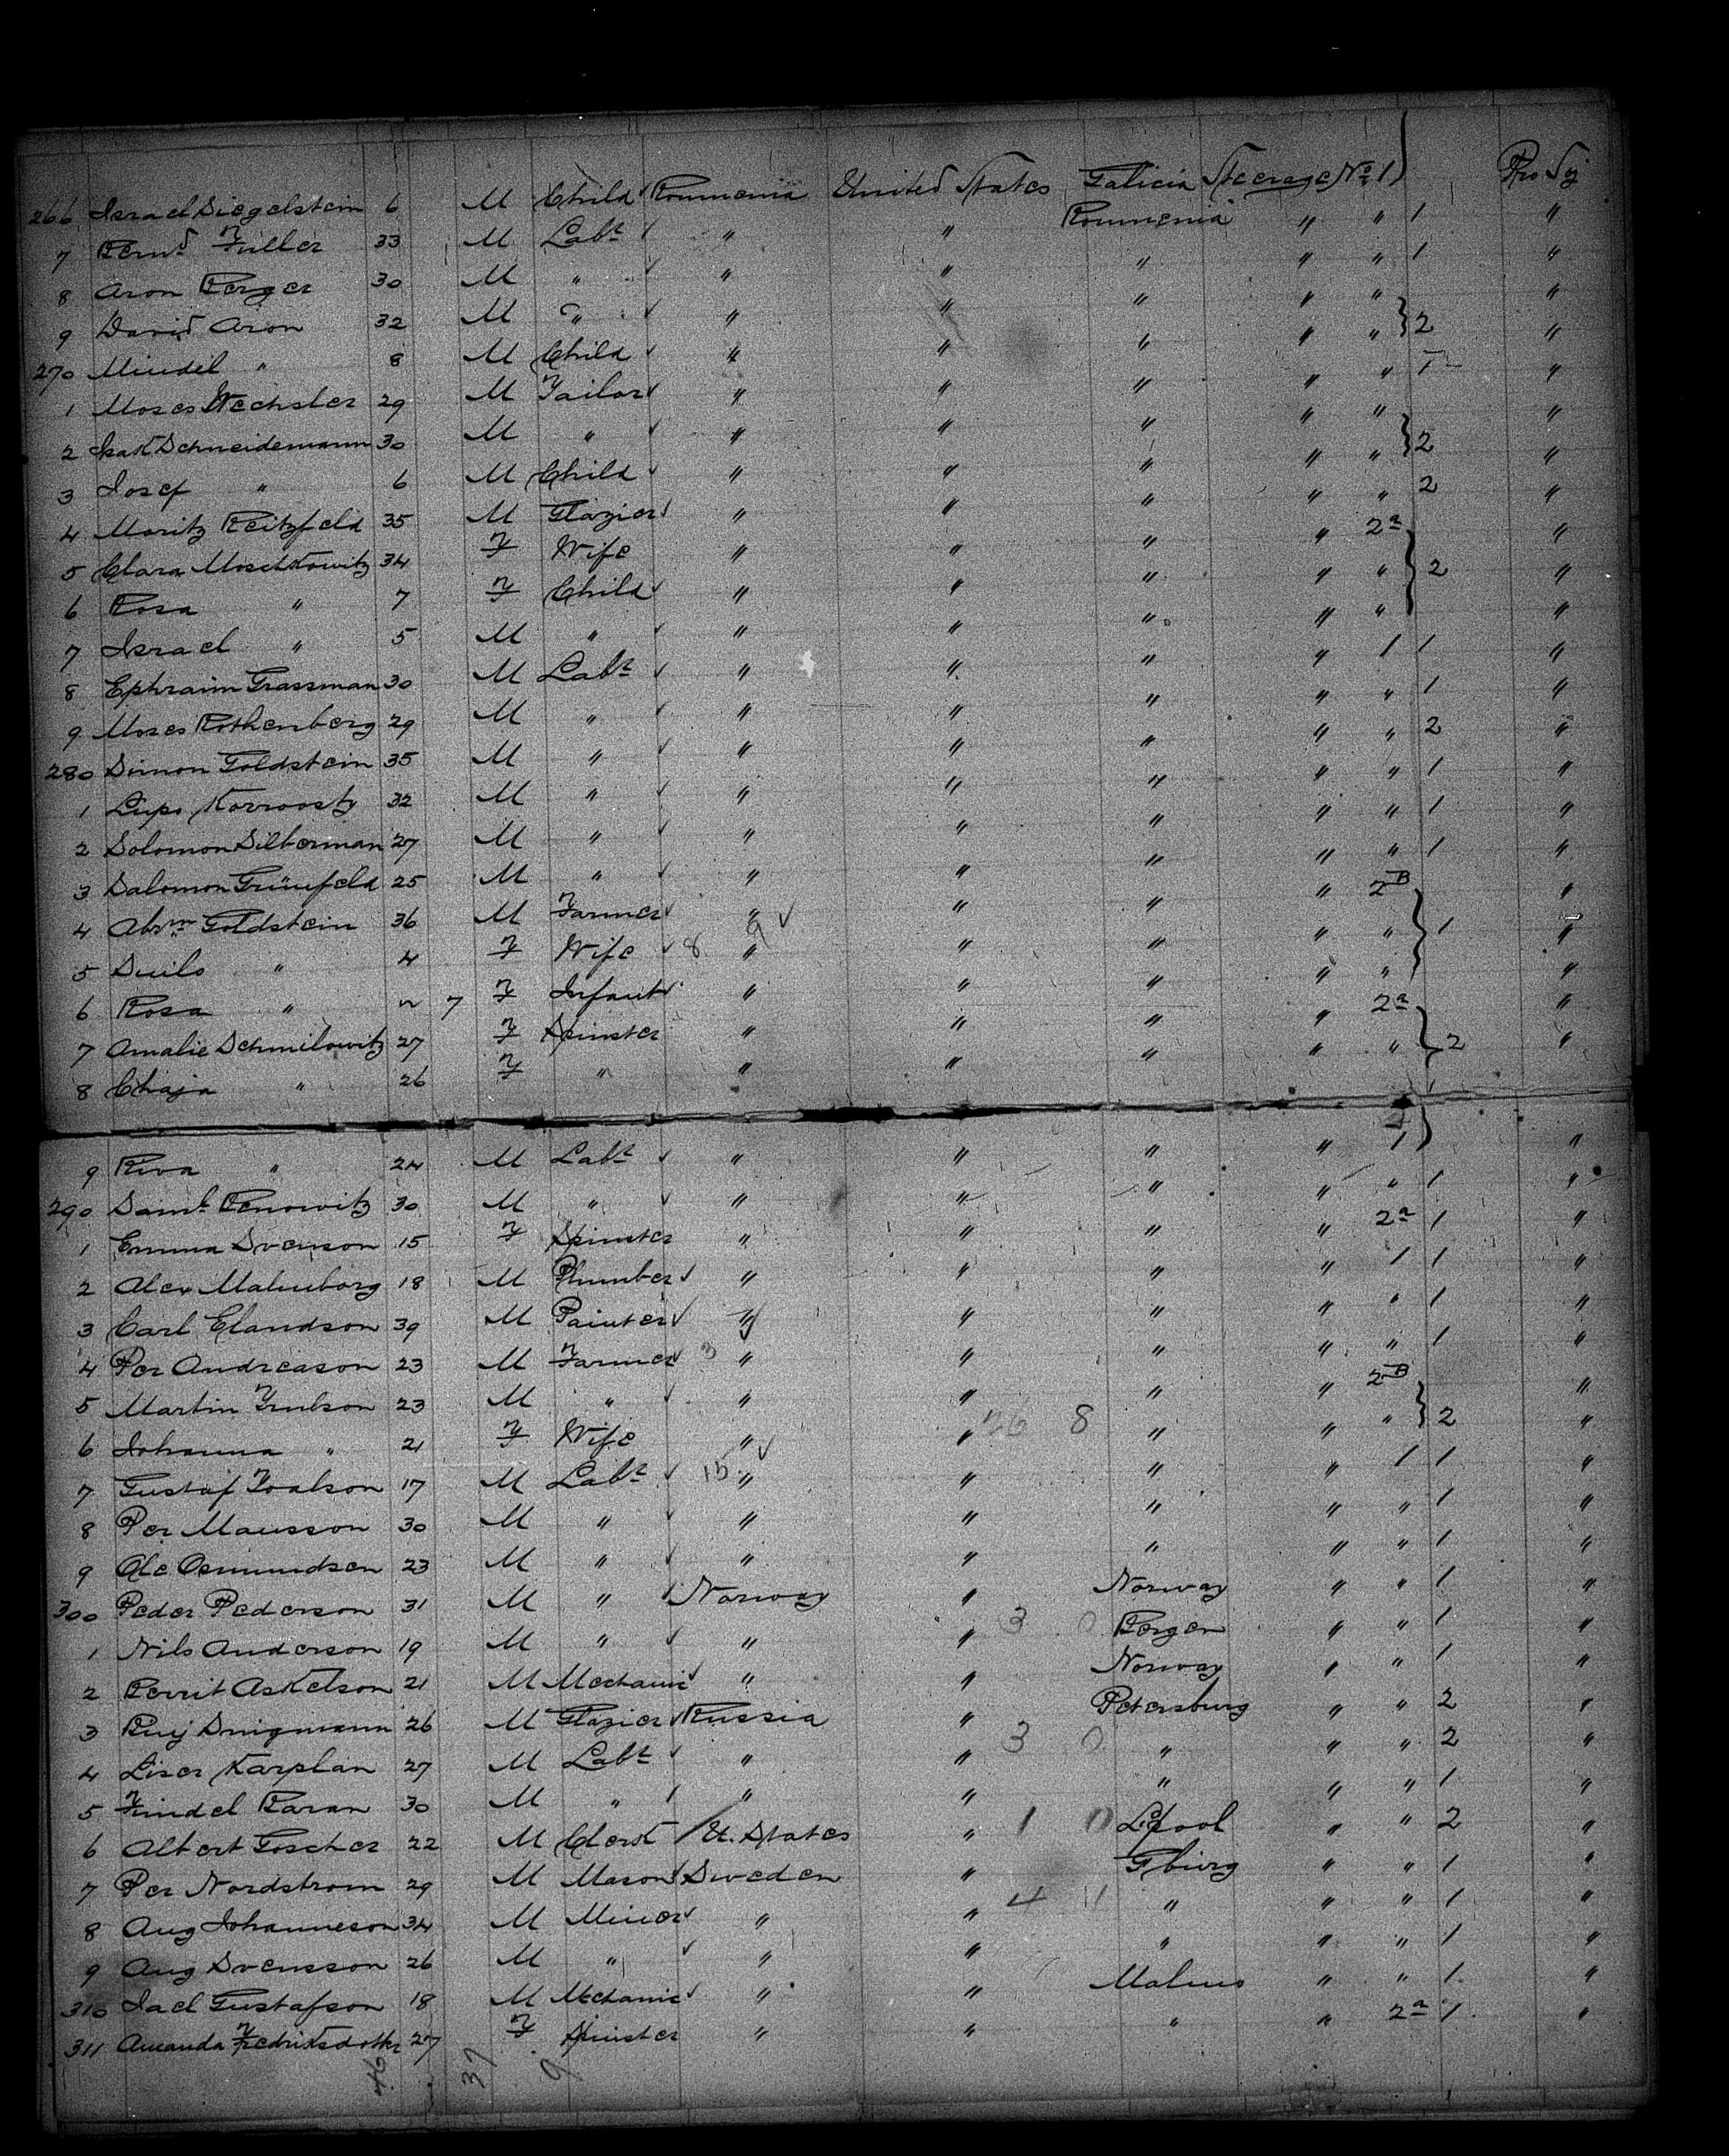 266 Israel Siegelstein 6 M Child Roumenia United States Galicia Steerage No 1 Pro Sj
7 Bernd Fuller 33 M Labr " " Roumenia " " 1 "
8 Aron Berger 30 M " " " " " " 1 "
9 David Aron 32 M " " " " " " "
270 Mindel " 8 M Child " " " " " 2 "
1 Moses Wechsler 29 M Tailor " " " " " 1 "
2 Isak Schneidemann 30 M " " " " " " "
3 Josef " 6 M Child " " " " " 2 "
4 Moritz Reitzfeld 35 M Glazier " " " " " 2 "
5 Clara Moschkowitz 34 F Wife " " " " 2a "
6 Rosa " 7 F Child " " " " " 2 "
7 Israel " 5 M " " " " " " "
8 Ephraim Grassman 30 M Labr " " " " 1 1 "
9 Moses Rothenberg 29 M " " " " " " 1 "
280 Simon Goldstein 35 M " " " " " " 2 "
1 Lupo 32 M " " " " " " 1 "
2 Solomon Silberman 27 M " " " " " " 1 "
3 Salomon Grünfeld 25 M " " " " " " 1 "
4 Abrm Goldstein 36 M Farmer " " " " 2B "
5 " 4 F Wife 8 9 " " " " " 1 "
6 Rosa " 7 F Infant " " " " " "
7 Amalie Schmilowitz 27 F Spinster " " " " 2a "
8 Chaja " 26 F " " " " " " 2 "
9 Riva " 24 M Labr " " " " 1 "
290 Saml Benowitz 30 M " " " " " " 1 "
1 Emma Svenson 15 F Spinster " " " " 2a 1 "
2 Alex Malmborg 18 M Plumber " " " " 1 1 "
3 Carl Elandson 39 M Painter " " " " " 1 "
4 Per Andreason 23 M Farmer 3 " " " " " 1 "
5 Martin 23 M " " " " " 2B "
6 Johanna " 21 F Wife " " 26 8 " " " 2 "
7 Gustaf 17 M Labr 15 " " " " 1 1 "
8 Per Mausson 30 M " " " " " " 1 "
9 Ole Osmundsen 23 M " " " " " " 1 "
300 Peder Pederson 31 M " Norway " Norway " " 1 "
1 Nils Anderson 19 M " " " 3 0 Bergen " " 1 "
2 Berrit Askelson 21 M Mechanic " " Norway " " 1 "
3 26 M Glazier Russia " Petersburg " " 2 "
4 Liser Karplan 27 M Labr " " 3 0 " " " 2 "
5 Findel Baran 30 M " " " " " " 1 "
6 Albert Goscher 22 M Clerk U. States " 1 0 Lpool " " 2 "
7 Per Nordstrom 29 M Mason Sweden " Gburg " " 1 "
8 Aug Johanneson 34 M Miner " " 4 1 " " " 1 "
9 Aug Svensson 26 M " " " " " " 1 "
310 Gustafson 18 M Mechanic " " Malmo " " 1 "
311 Amanda Fredriksdotter 27 F Spinster " " " " 2a 1 "
46 37 9